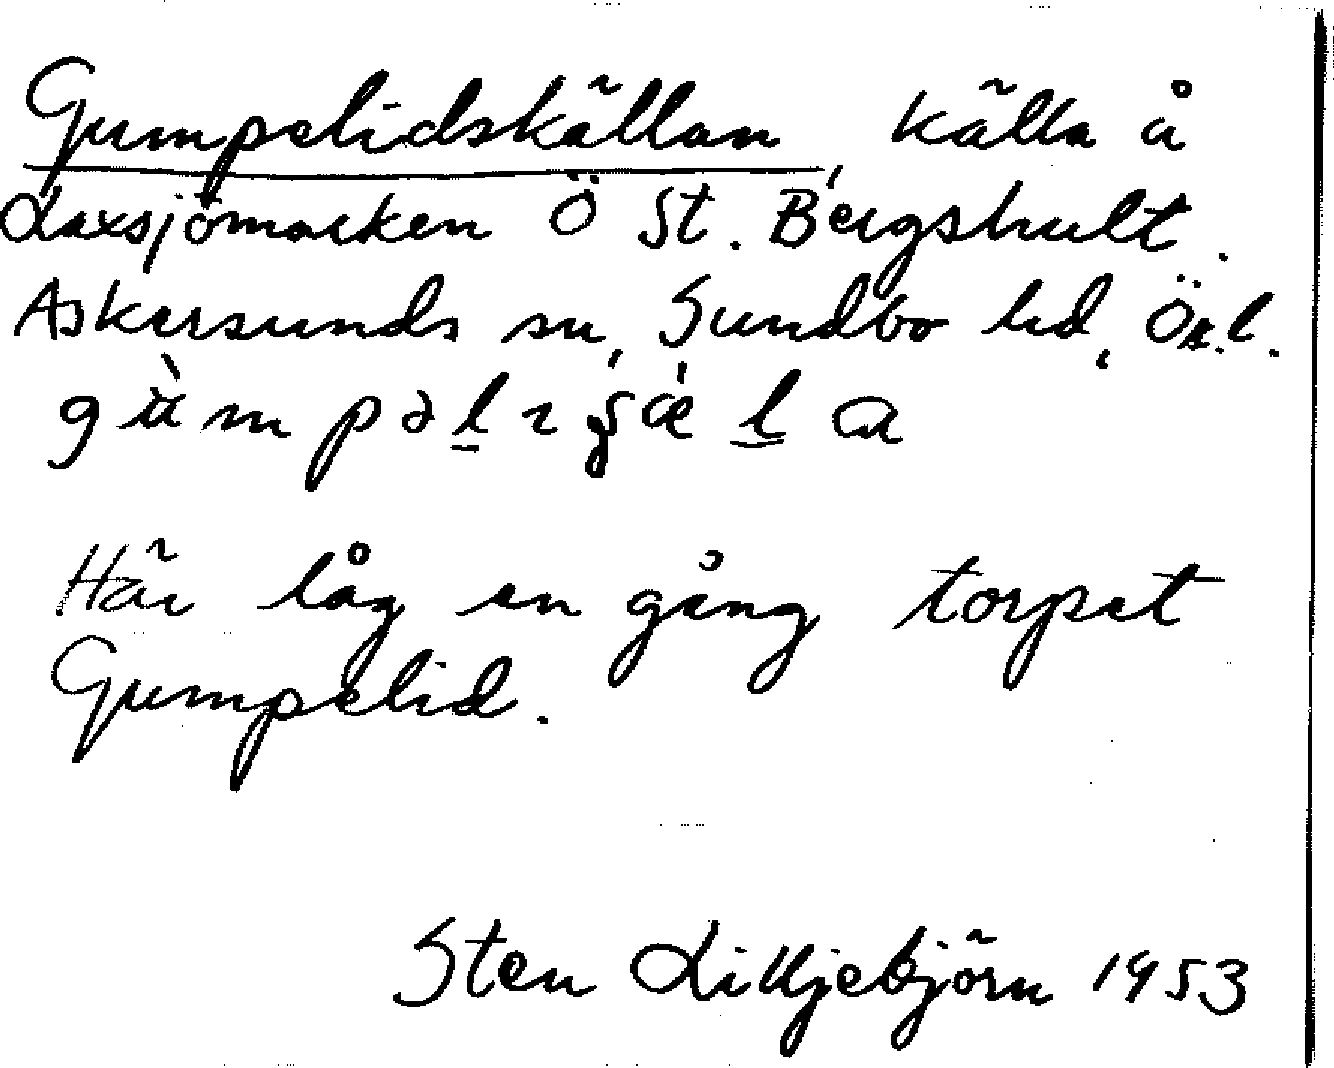 Gumpelidskällan, källa å
Laxsjömarken Ö St. Bergshult.
Askersunds sn, Sundbo hd, Ör.l.
Här låg en gång torpet
Gumpelid.
Sten Lilljebjörn 1953